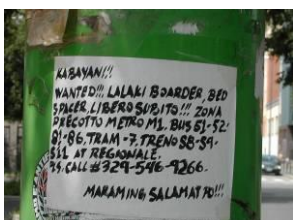 KABAYAN!!!
WANTED!!! LALAKI BOARDER, BED
SPACER, LIBERO SUBITO!!! ZONA
PRECOTTO METRO M1. BUS 51-52-
81-86, TRAM-7. TRENO S8-S9-
S11 AT REGIONALE.
CALL #329-546-9266.
MARAMING SALAMAT PO!!!